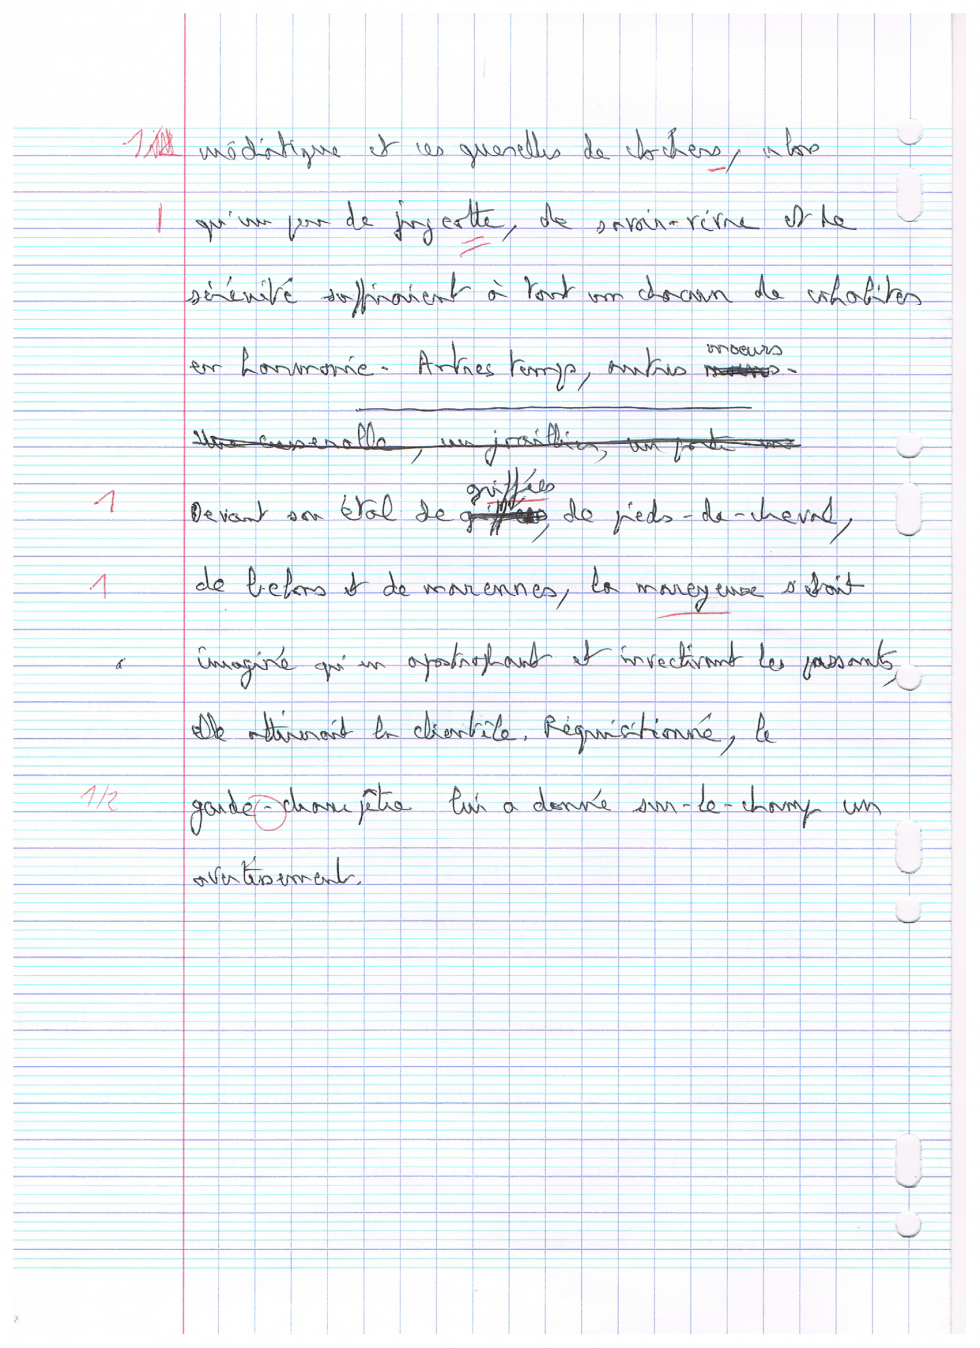 1 médiatique et ces querelles de clochers, alors
1 qu'un peu de jugeotte, de savoir-vivre et de
sérénité suffiraient à tout un chacun de cohabiter
en harmonie. Autres temps, autres moeurs.
Une cussenolle, un joaillier, un porte
1 Devant son étal de griffées, de pieds-de-cheval,
1 de belons et de marennes, la mareyeuse s'était
imaginé qu'en apostrophant et invectivant les passants,
elle attirerait la clientèle. Réquisitionné, le
1/2 garde-champêtre lui a donné sur-le-champ un
avertissement.